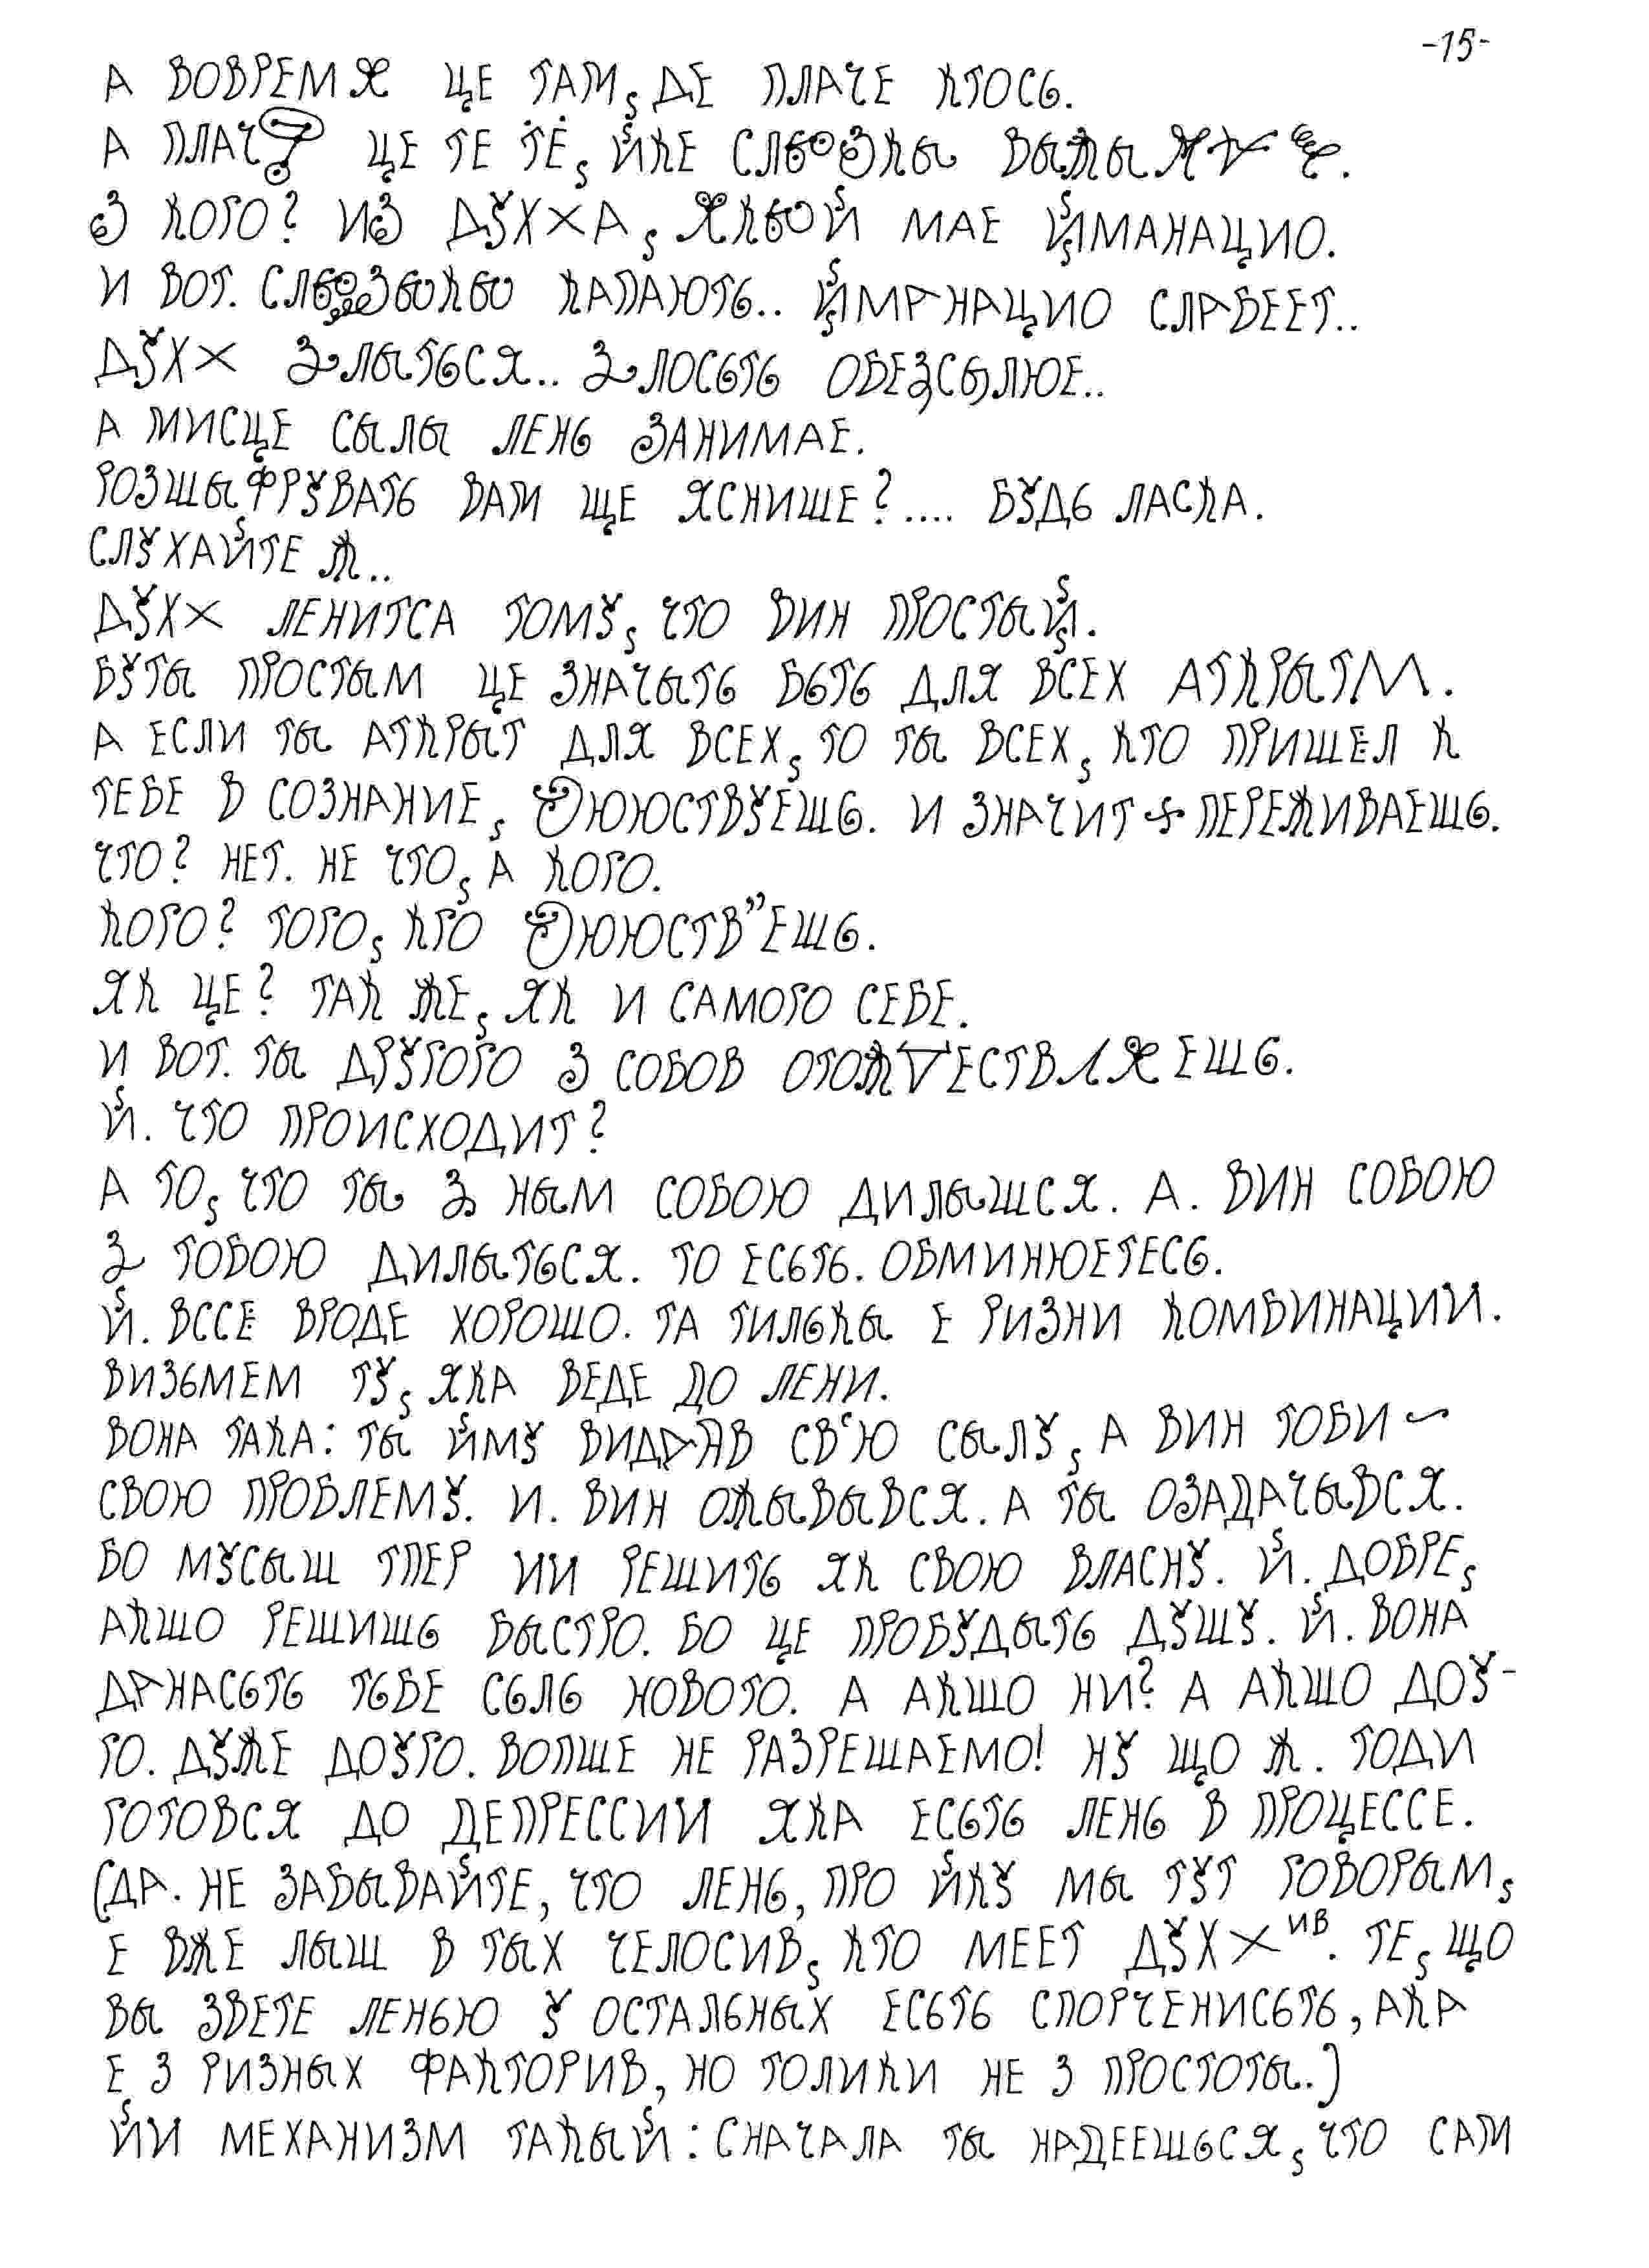 -15-
А ВОВРЕМЯ ЦЕ ТАМ, ДЕ ПЛАЧЕ КТОСЬ.
А ПЛАЧ ЦЕ ТЕ ТЕ, ЙКЕ
З КОГО? ИЗ ДУХХА, ЯКЬОЙ МАЕ ЙМАНАЦИО.
И ВОТ. КАПАЮТЬ.. ЙМАНАЦИО СЛАБЕЕТ..
ДУХХ ЗЛЫТЬСЯ.. ЗЛОСЬТЬ ОБЕЗСЫЛЮЕ..
А МИСЦЕ СЫЛЫ ЛЕНЬ ЗАНИМАЕ.
РОЗШЫФРУВАТЬ ВАМ ЩЕ ЯСНИШЕ?.... БУДЬ ЛАСКА.
СЛУХАЙТЕ Ж..
ДУХХ ЛЕНИТСА ТОМУ, ЧТО ВИН ПРОСТЫЙ.
БУТЫ ПРОСТЫМ ЦЕ ЗНАЧЫТЬ БЬТЬ ДЛЯ ВСЕХ АТКРЫТМ.
А ЕСЛИ ТЫ АТКРЫТ ДЛЯ ВСЕХ, ТО ТЫ ВСЕХ, КТО ПРИШЁЛ К
ТЕБЕ В СОЗНАНИЕ, И ЗНАЧИТ ПЕРЕЖИВАЕШЬ.
ЧТО? НЕТ. НЕ ЧТО, А КОГО.
КОГО? ТОГО, КТО
ЯК ЦЕ? ТАК ЖЕ, ЯК И САМОГО СЕБЕ.
И ВОТ. ТЫ ДРУГОГО З СОБОВ ОТОЖДЕСТВЛЯЕШЬ.
Й. ЧТО ПРОИСХОДИТ?
А ТО, ЧТО ТЫ З НЫМ СОБОЮ ДИЛЫШСЯ. А. ВИН СОБОЮ
З ТОБОЮ ДИЛЫТЬСЯ. ТО ЕСЬТЬ. ОБМИНЮЕТЕСЬ.
Й. ВССЁ ВРОДЕ ХОРОШО. ТА ТИЛЬКЫ Е РИЗНИ КОМБИНАЦИИ.
ВИЗЬМЕМ ТУ, ЯКА ВЕДЕ ДО ЛЕНИ.
ВОНА ТАКА: ТЫ ЙМУ ВИДДАВ СВ'Ю СЫЛУ, А ВИН ТОБИ ~
СВОЮ ПРОБЛЕМУ. И. ВИН ОЖЫВЫВСЯ. А ТЫ ОЗАДАЧЫВСЯ.
БО МУСЫШ ТПЕР ИИ РЕШИТЬ ЯК СВОЮ ВЛАСНУ. Й. ДОБРЕ,
АКШО РЕШИШЬ БЫСТРО. БО ЦЕ ПРОБУДЫТЬ ДУШУ. Й. ВОНА
ДАНАСЬТЬ ТЬБЕ СЬЛЬ НОВОГО. А АКШО НИ? А АКШО ДОУ-
ГО. ДУЖЕ ДОУГО. ВОПШЕ НЕ РАЗРЕШАЕМО! НУ ЩО Ж. ТОДИ
ГОТОВСЯ ДО ДЕПРЕССИИ ЯКА ЕСЬТЬ ЛЕНЬ В ПРОЦЕССЕ.
(ДА. НЕ ЗАБЫВАЙТЕ, ЧТО ЛЕНЬ, ПРО ЙКУ МЫ ТУТ ГОВОРЫМ,
Е ВЖЕ ЛЫШ В ТЫХ ЧЕЛОСИВ, КТО МЕЕТ ДУХХИВ. ТЕ, ЩО
ВЫ ЗВЕТЕ ЛЕНЬЮ У ОСТАЛЬНЫХ ЕСЬТЬ СПОРЧЕНИСЬТЬ, АКА
Е З РИЗНЫХ ФАКТОРИВ, НО ТОЛИКИ НЕ З ПРОСТОТЫ.)
ЙИ МЕХАНИЗМ ТАКЫЙ: СНАЧАЛА ТЫ НАДЕЕШЬСЯ, ЧТО САМ